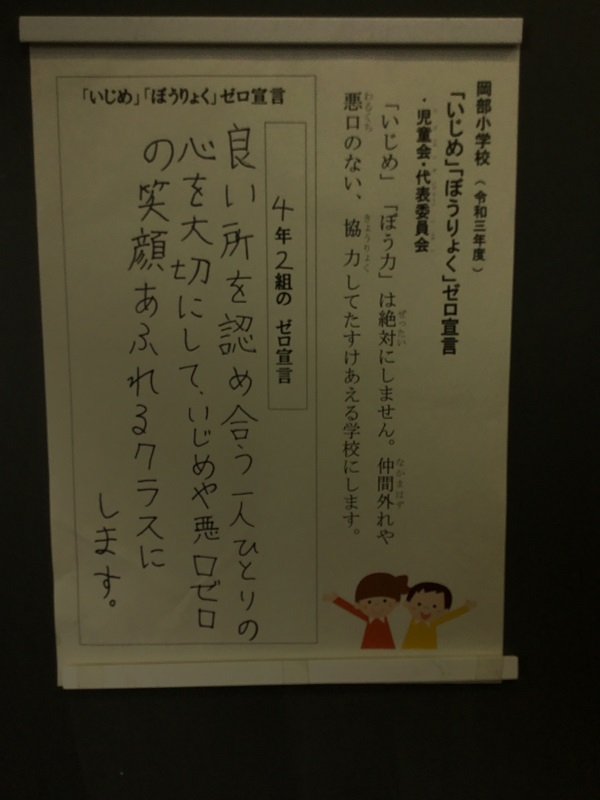 岡部小学校（令和三年度）
「いじめ」「ぼうりょく」ゼロ宣言
・児童会・代表委員会
「いじめ」「ぼう力」は絶対にしません。仲間外れや
悪口のない、協力してたすけあえる学校にします。
「いじめ」「ぼうりょく」ゼロ宣言
4年2組の ゼロ宣言
良い所を認め合う一人ひとりの
心を大切にして、いじめや悪口ゼロ
の笑顔あふれるクラスに
します。